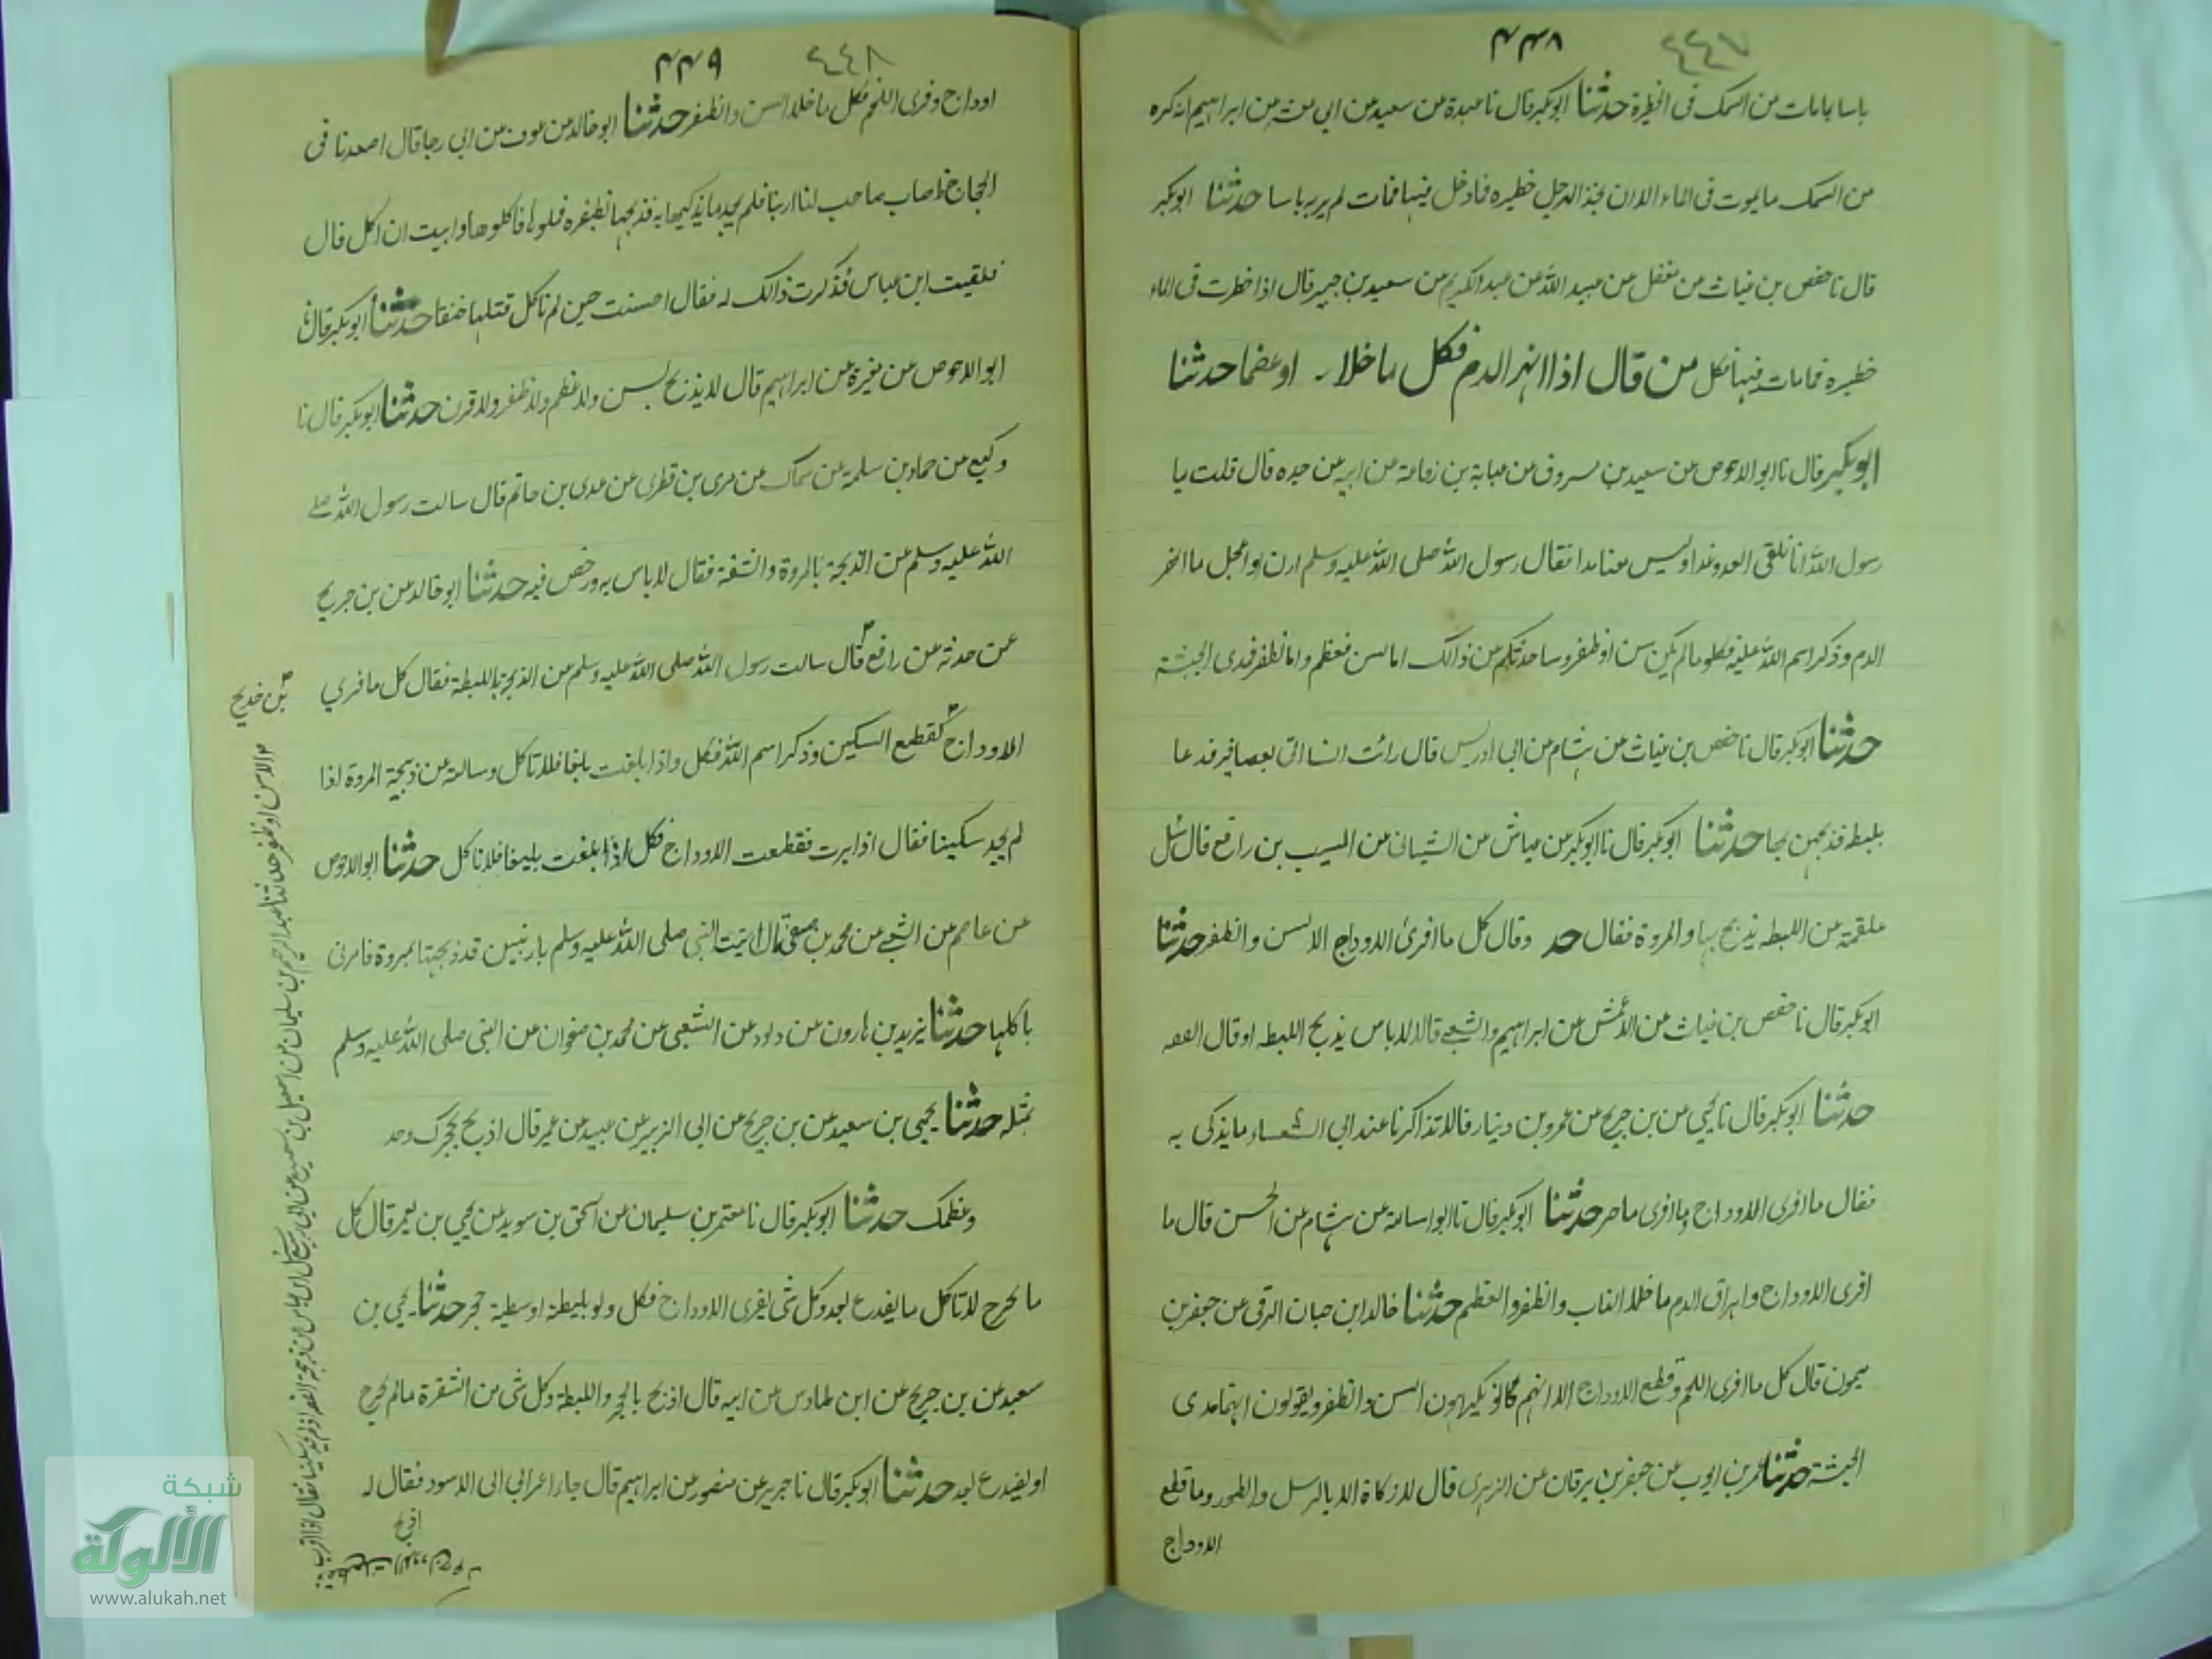 ٤٤٧
۴۴۸
باسا بامات من السمک فی الخطیرة حدثنا ابوبکر قال نا عبدة عن سعید عن ابی معشر عن ابراہیم انه کره
من السمک ما یموت فی الماء الا ان یتخذ الرجل خطیره فما دخل فیہا فمات لم یر به باسا حدثنا ابوبکر
قال نا حفص بن غیاث عن مغفل عن عبید اللہ عن عبد الکریم عن سعید بن جبیر قال اذا خطرت فی الماء
خطیره فمامات فیہا فکل من قال اذا انہر الدم فکل ما خلا اوعضما حدثنا
ابوبکر قال نا ابو الاحوص عن سعید بن مسروق عن عبایة بن رفاعة عن ابیه عن جده قال قلت یا
رسول اللہ انا نلقی العدو غدا ولیس معنا مدا فقال رسول اللہ صلی اللہ علیه وسلم ارن او اعجل ما انحر
الدم و ذکر اسم اللہ علیه فکلو ما لم یکن سن او ظفر وساحدثکم عن ذالک اما السن فعظم واما الظفر فمدی الحبشة
حدثنا ابوبکر قال نا حفص بن غیاث عن ہشام عن ابی ادریس قال رائت انسا اتی بعصافیر فدعا
بلیطه فذبحہن بحا حدثنا ابوبکر قال نا ابوبکر عن عیاش عن الشیبانی عن المسیب بن رافع قال سئل
علقمة عن اللیطه یذبح بہا والمروة فقال حد وقال کل ما افری الاوداج الا السن والظفر حدثنا
ابوبکر قال نا حفص بن غیاث عن الاعمش عن ابراہیم والشعبے قالا لا باس یذبح اللیطه او قال القصه
حدثنا ابوبکر قال نا یحیی عن بن جریج عن عمرو بن دینار قالا تذاکرنا عند ابی الشعساء ما یذکی به
فقال ما افری الاوداج وما فری ماحر حدثنا ابوبکر قال نا ابو اسامة عن ہشام عن الحسن قال ما
افری الاوداج واہراق الدم ما خلا الناب والظفر والعظم حدثنا خالد ابن حبان الرقی عن جعفر بن
میمون قال کل ما افری اللحم وقطع الاوداج الا انہم کانو یکرہون السن والظفر ویقولون انہا مدی
الحبشة حدثنا عمر بن ایوب عن جعفر بن برقان عن الزہری قال لا ذکاة الا بالاسل والظرر وما قطع
الاوداج
٤٤٨
۴۴۹
اوداج وفری اللحم فکل ما خلا السن والظفر حدثنا ابو خالد عن عوف عن ابی رجا قال اصعدنا فی
الحجاج فاصاب صاحب لنا ارنبا فلم یجد ما یذکیها به فذبحہا بظفره فملوہا فاکلوها وابیت ان اکل قال
فلقیت ابن عباس فذکرت ذالک له فقال احسنت حین لم تاکل قتلہا خنقا حدثنا ابوبکر قال نا
ابو الاحوص عن مغیرة عن ابراہیم قال لا یذبح بسن ولا عظم ولا ظفر ولا قرن حدثنا ابوبکر قال نا
وکیع عن حماد بن سلمة عن سماک عن مری بن قطری عن عدی بن حاتم قال سالت رسول اللہ صلے
اللہ علیه وسلم عن الذبیحة بالمروة والشقة فقال لا باس به ورخص فیه حدثنا ابو خالد عن بن جریج
عن حدثه عن رافع قال سالت رسول اللہ صلی اللہ علیه وسلم عن الذبیحة باللیطة فقال کل ما فری
الاوداج کقطع السکین وذکر اسم اللہ فکل واذا بلغت بلغا فلا تاکل وسالته عن ذبیحة المروة اذا
لم یجد سکینا فقال اذا برت فقطعت الاوداج فکل اذا بلغت بلیغا فلا تاکل حدثنا ابو الاحوص
عن عاصم عن الشعبے عن محمد بن صفی قال اتیت النبی صلی اللہ علیه وسلم بارنبین قد ذبحتہا بمروة فامرنی
باکلہا حدثنا یزید بن ہارون عن داود عن الشعبی عن محمد بن صفوان عن النبی صلی اللہ علیه وسلم
بمثله حدثنا یحیی بن سعید عن بن جریج عن ابی الزبیر عن عبید عن عمیر قال اذبح بحجرک وحد
وعظمک حدثنا ابوبکر قال نا معتمر بن سلیمان عن اسحق بن سوید عن یحیی بن یعمر قال کل
ما یحرج لا تاکل ما یفدع لحد وکل شی یفری الاوداج فکل ولو بلیطة او سطیة حجر حدثنا یحیی بن
سعید عن بن جریج عن ابن طاوس عن ابیه قال اذبح بالحجر واللیطة وکل شی من الشفرة مالم یحرج
او یفدع لحد حدثنا ابوبکر قال نا جریر عن منصور عن ابراہیم قال جاء اعرابی الی الاسود فقال له
اذبح
بن خدیج
الا سن او ظفر حدثنا عبد الرحیم بن سلیمان عن اسمعیل بن سمیع عن ابی ربیع سئل ابن عباس عن ذبیحة القصه اذا لم یجد سکینا فقال اذا برت
فقطعت الاوداج
شبكة
الألوكة
www.alukah.net